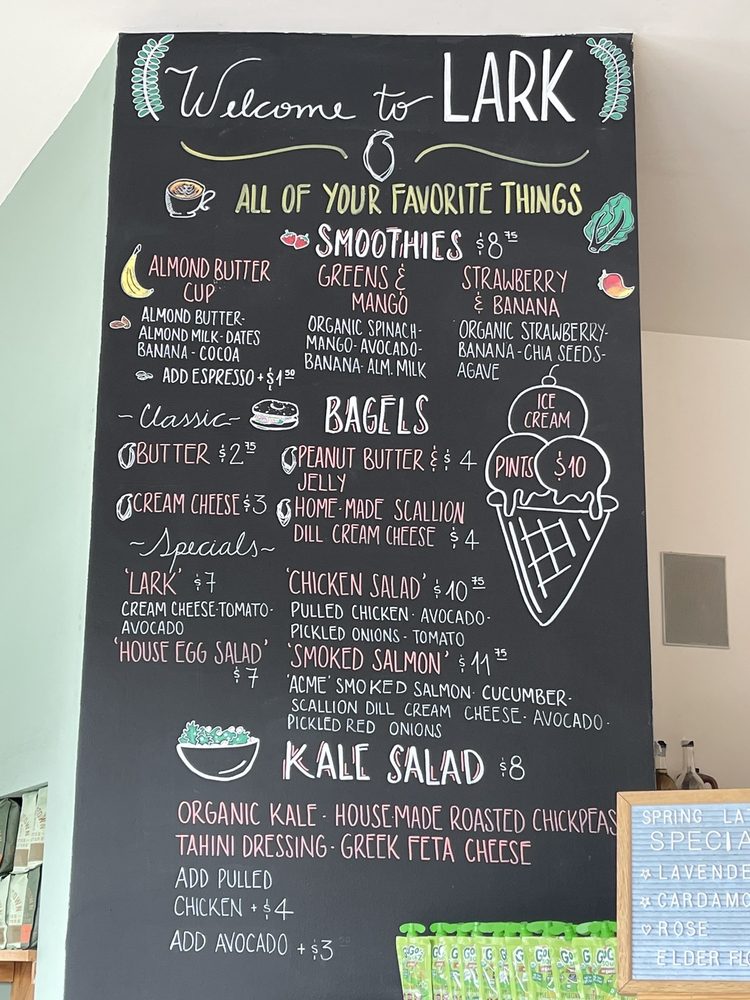 Welcome to LARK
ALL OF YOUR FAVORITE THINGS
SMOOTHIES $8 75
ALMOND BUTTER
CUP
ALMOND BUTTER-
ALMOND MILK-DATES
BANANA - COCOA
ADD ESPRESSO + $1 50
GREENS &
MANGO
ORGANIC SPINACH-
MANGO-AVOCADO-
BANANA-ALM. MILK
STRAWBERRY
& BANANA
ORGANIC STRAWBERRY-
BANANA-CHIA SEEDS-
AGAVE
~Classic~
BAGELS
BUTTER $2 75
CREAM CHEESE $3
PEANUT BUTTER & $4
JELLY
HOME-MADE SCALLION
DILL CREAM CHEESE $4
ICE
CREAM
PINTS $10
~Specials~
'LARK' $7
CREAM CHEESE-TOMATO-
AVOCADO
'HOUSE EGG SALAD'
$7
'CHICKEN SALAD' $10 75
PULLED CHICKEN - AVOCADO-
PICKLED ONIONS - TOMATO
'SMOKED SALMON' $11 75
'ACME' SMOKED SALMON - CUCUMBER-
SCALLION DILL CREAM CHEESE - AVOCADO-
PICKLED RED ONIONS
KALE SALAD $8
ORGANIC KALE - HOUSEMADE ROASTED CHICKPEAS
TAHINI DRESSING - GREEK FETA CHEESE
ADD PULLED
CHICKEN + $4
ADD AVOCADO + $3
SPRING LA
SPECIA
LAVENDE
CARDAMO
ROSE
ELDER FLO